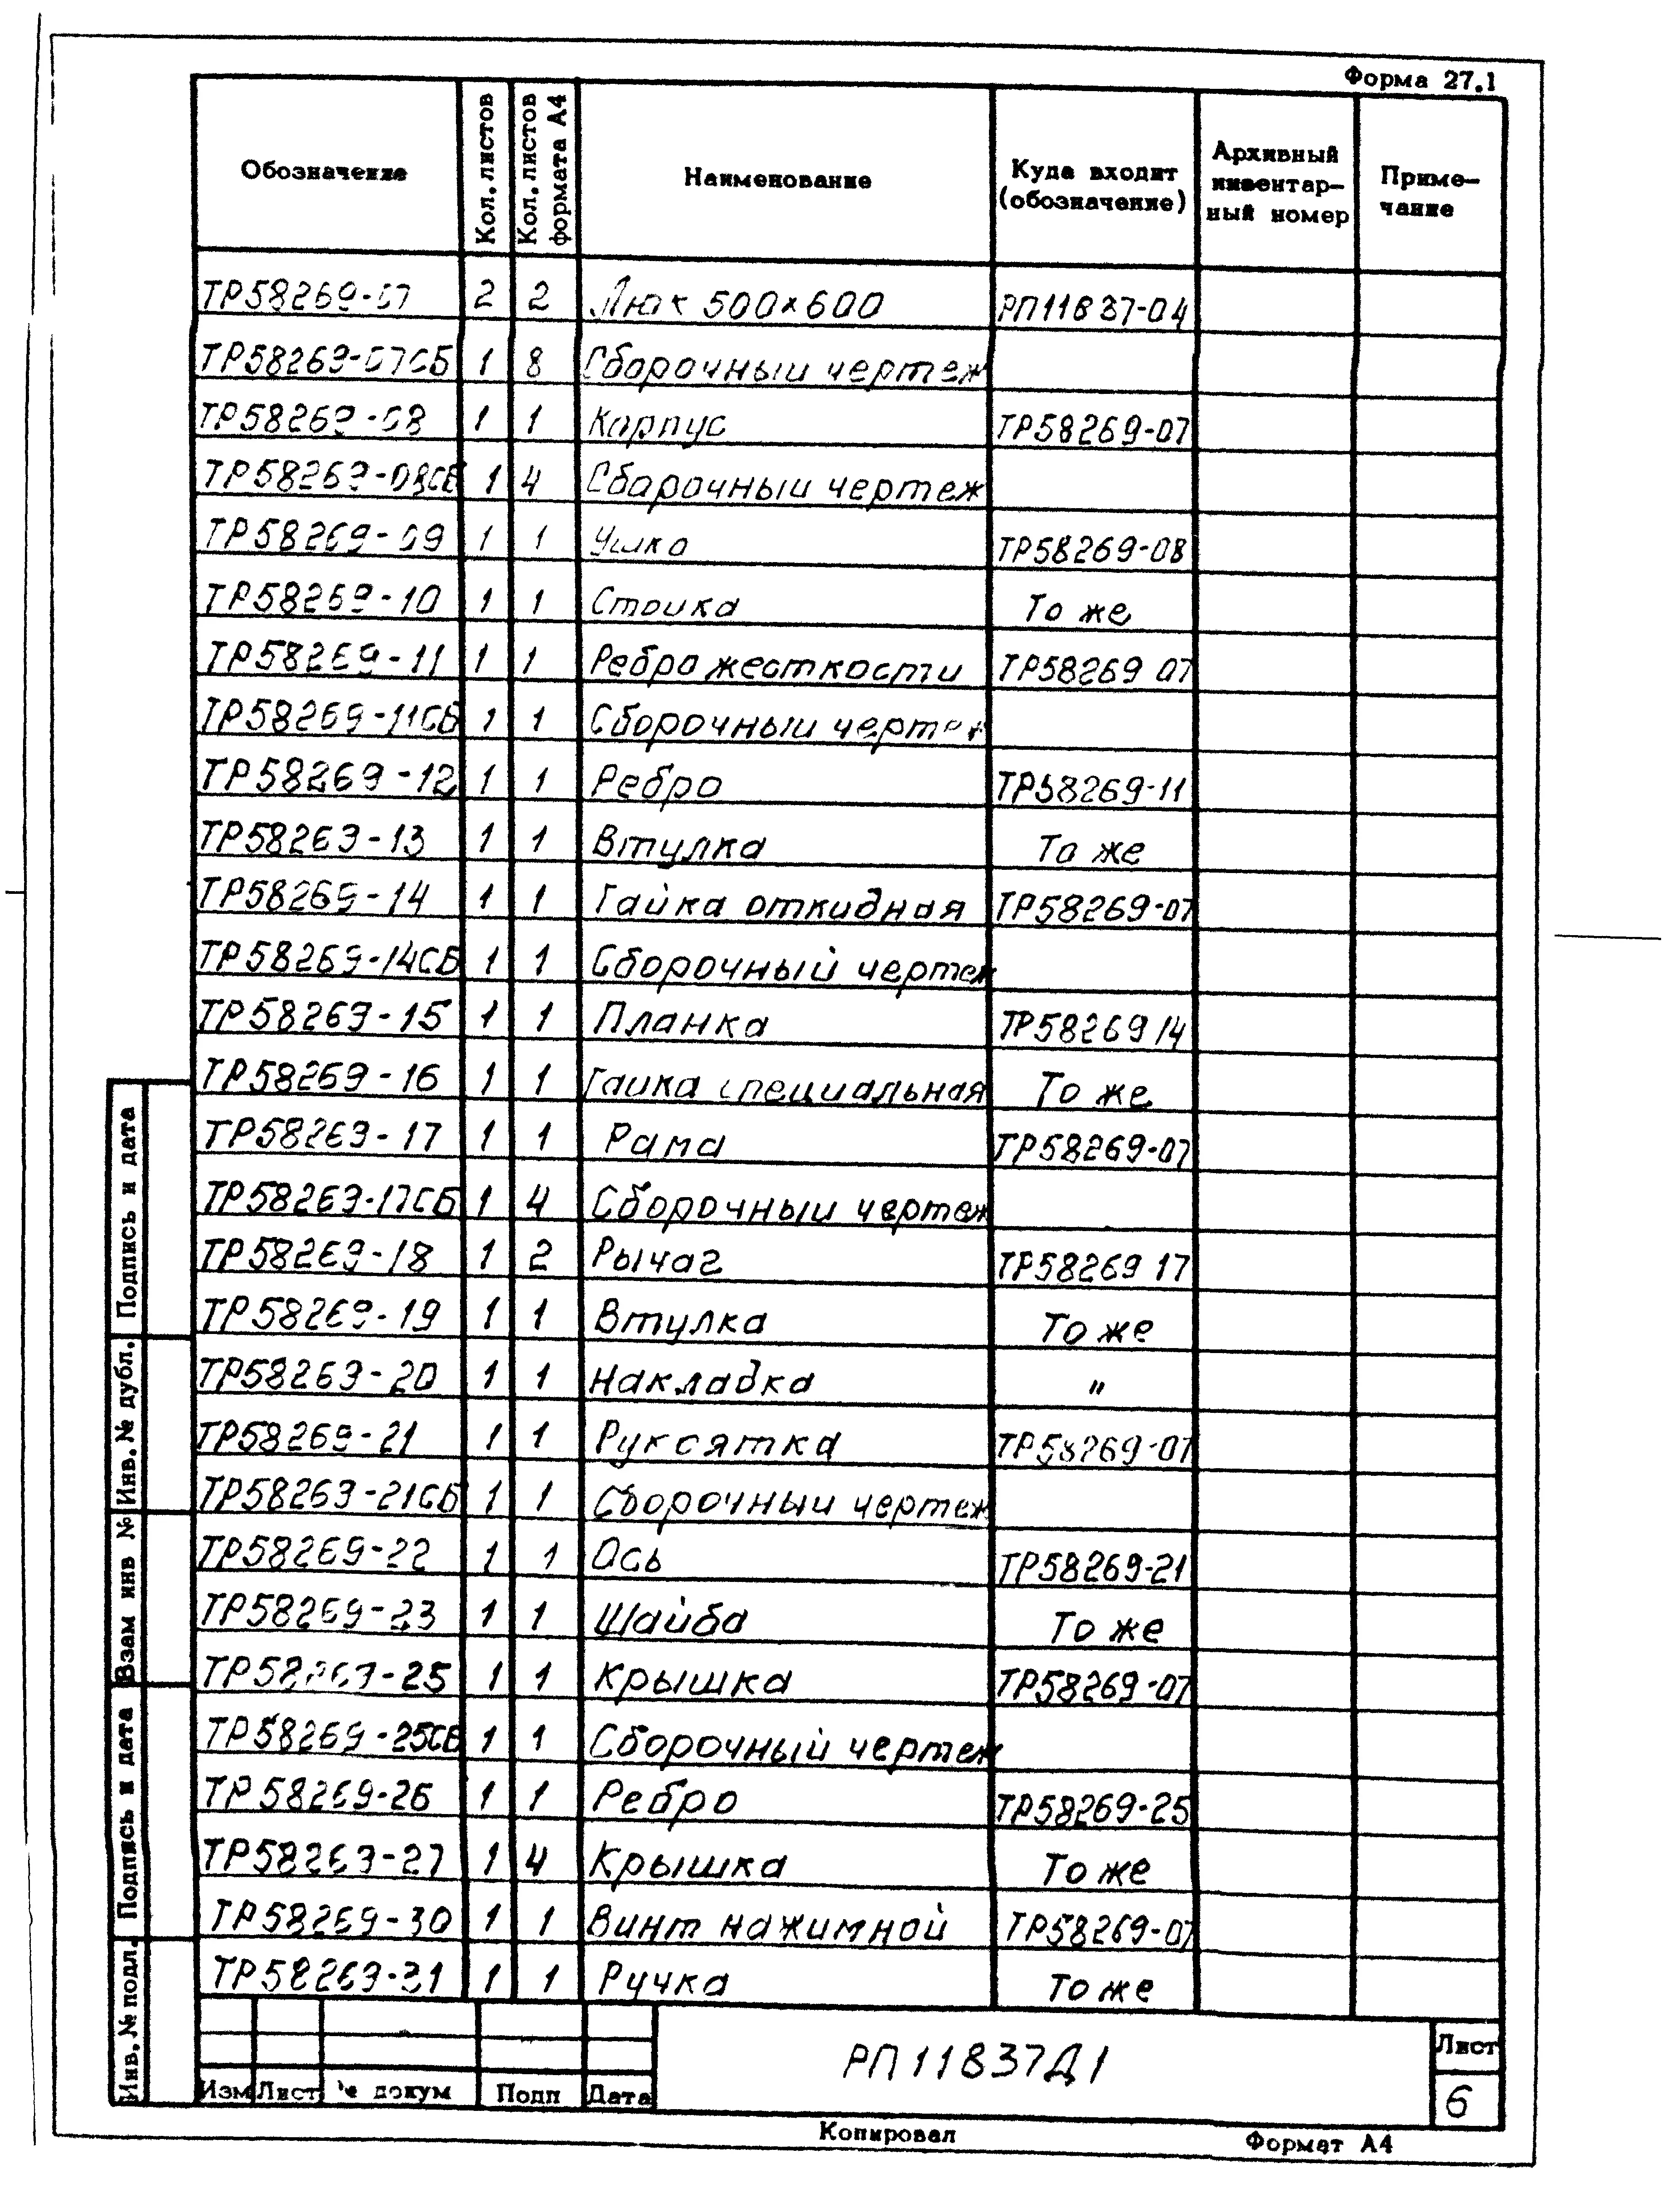 Форма 27.1
Обозначение | Кол. листов | Кол. листов формата А4 | Наименование | Куда входит (обозначение) | Архивный инвентар-ный номер | Приме-чание
ТР58269-07 2 2 Люк 500×600 РП11837-04
ТР58269-07СБ 1 8 Сборочный чертеж
ТР58269-08 1 1 Корпус ТР58269-07
ТР58269-08СБ 1 4 Сборочный чертеж
ТР58269-09 1 1 Ушко ТР58269-08
ТР58269-10 1 1 Стойка То же
ТР58269-11 1 1 Ребро жесткости ТР58269 07
ТР58269-11СБ 1 1 Сборочный чертеж
ТР58269-12 1 1 Ребро ТР58269-11
ТР58269-13 1 1 Втулка То же
ТР58269-14 1 1 Гайка откидная ТР58269-07
ТР58269-14СБ 1 1 Сборочный чертеж
ТР58269-15 1 1 Планка ТР58269 14
ТР58269-16 1 1 Гайка специальная То же
ТР58269-17 1 1 Рама ТР58269-07
ТР58269-17СБ 1 4 Сборочный чертеж
ТР58269-18 1 2 Рычаг ТР58269 17
ТР58269-19 1 1 Втулка То же
ТР58269-20 1 1 Накладка "
ТР58269-21 1 1 Рукоятка ТР58269-07
ТР58269-21СБ 1 1 Сборочный чертеж
ТР58269-22 1 1 Ось ТР58269-21
ТР58269-23 1 1 Шайба То же
ТР58269-25 1 1 Крышка ТР58269-07
ТР58269-25СБ 1 1 Сборочный чертеж
ТР58269-26 1 1 Ребро ТР58269-25
ТР58269-27 1 4 Крышка То же
ТР58269-30 1 1 Винт нажимной ТР58269-07
ТР58269-31 1 1 Ручка То же
Подпись и дата
Инв. № дубл.
Взам инв №
Подпись и дата
Инв. № подл.
Изм Лист № докум Подп Дата
РП11837Д1
Лист
6
Копировал Формат А4